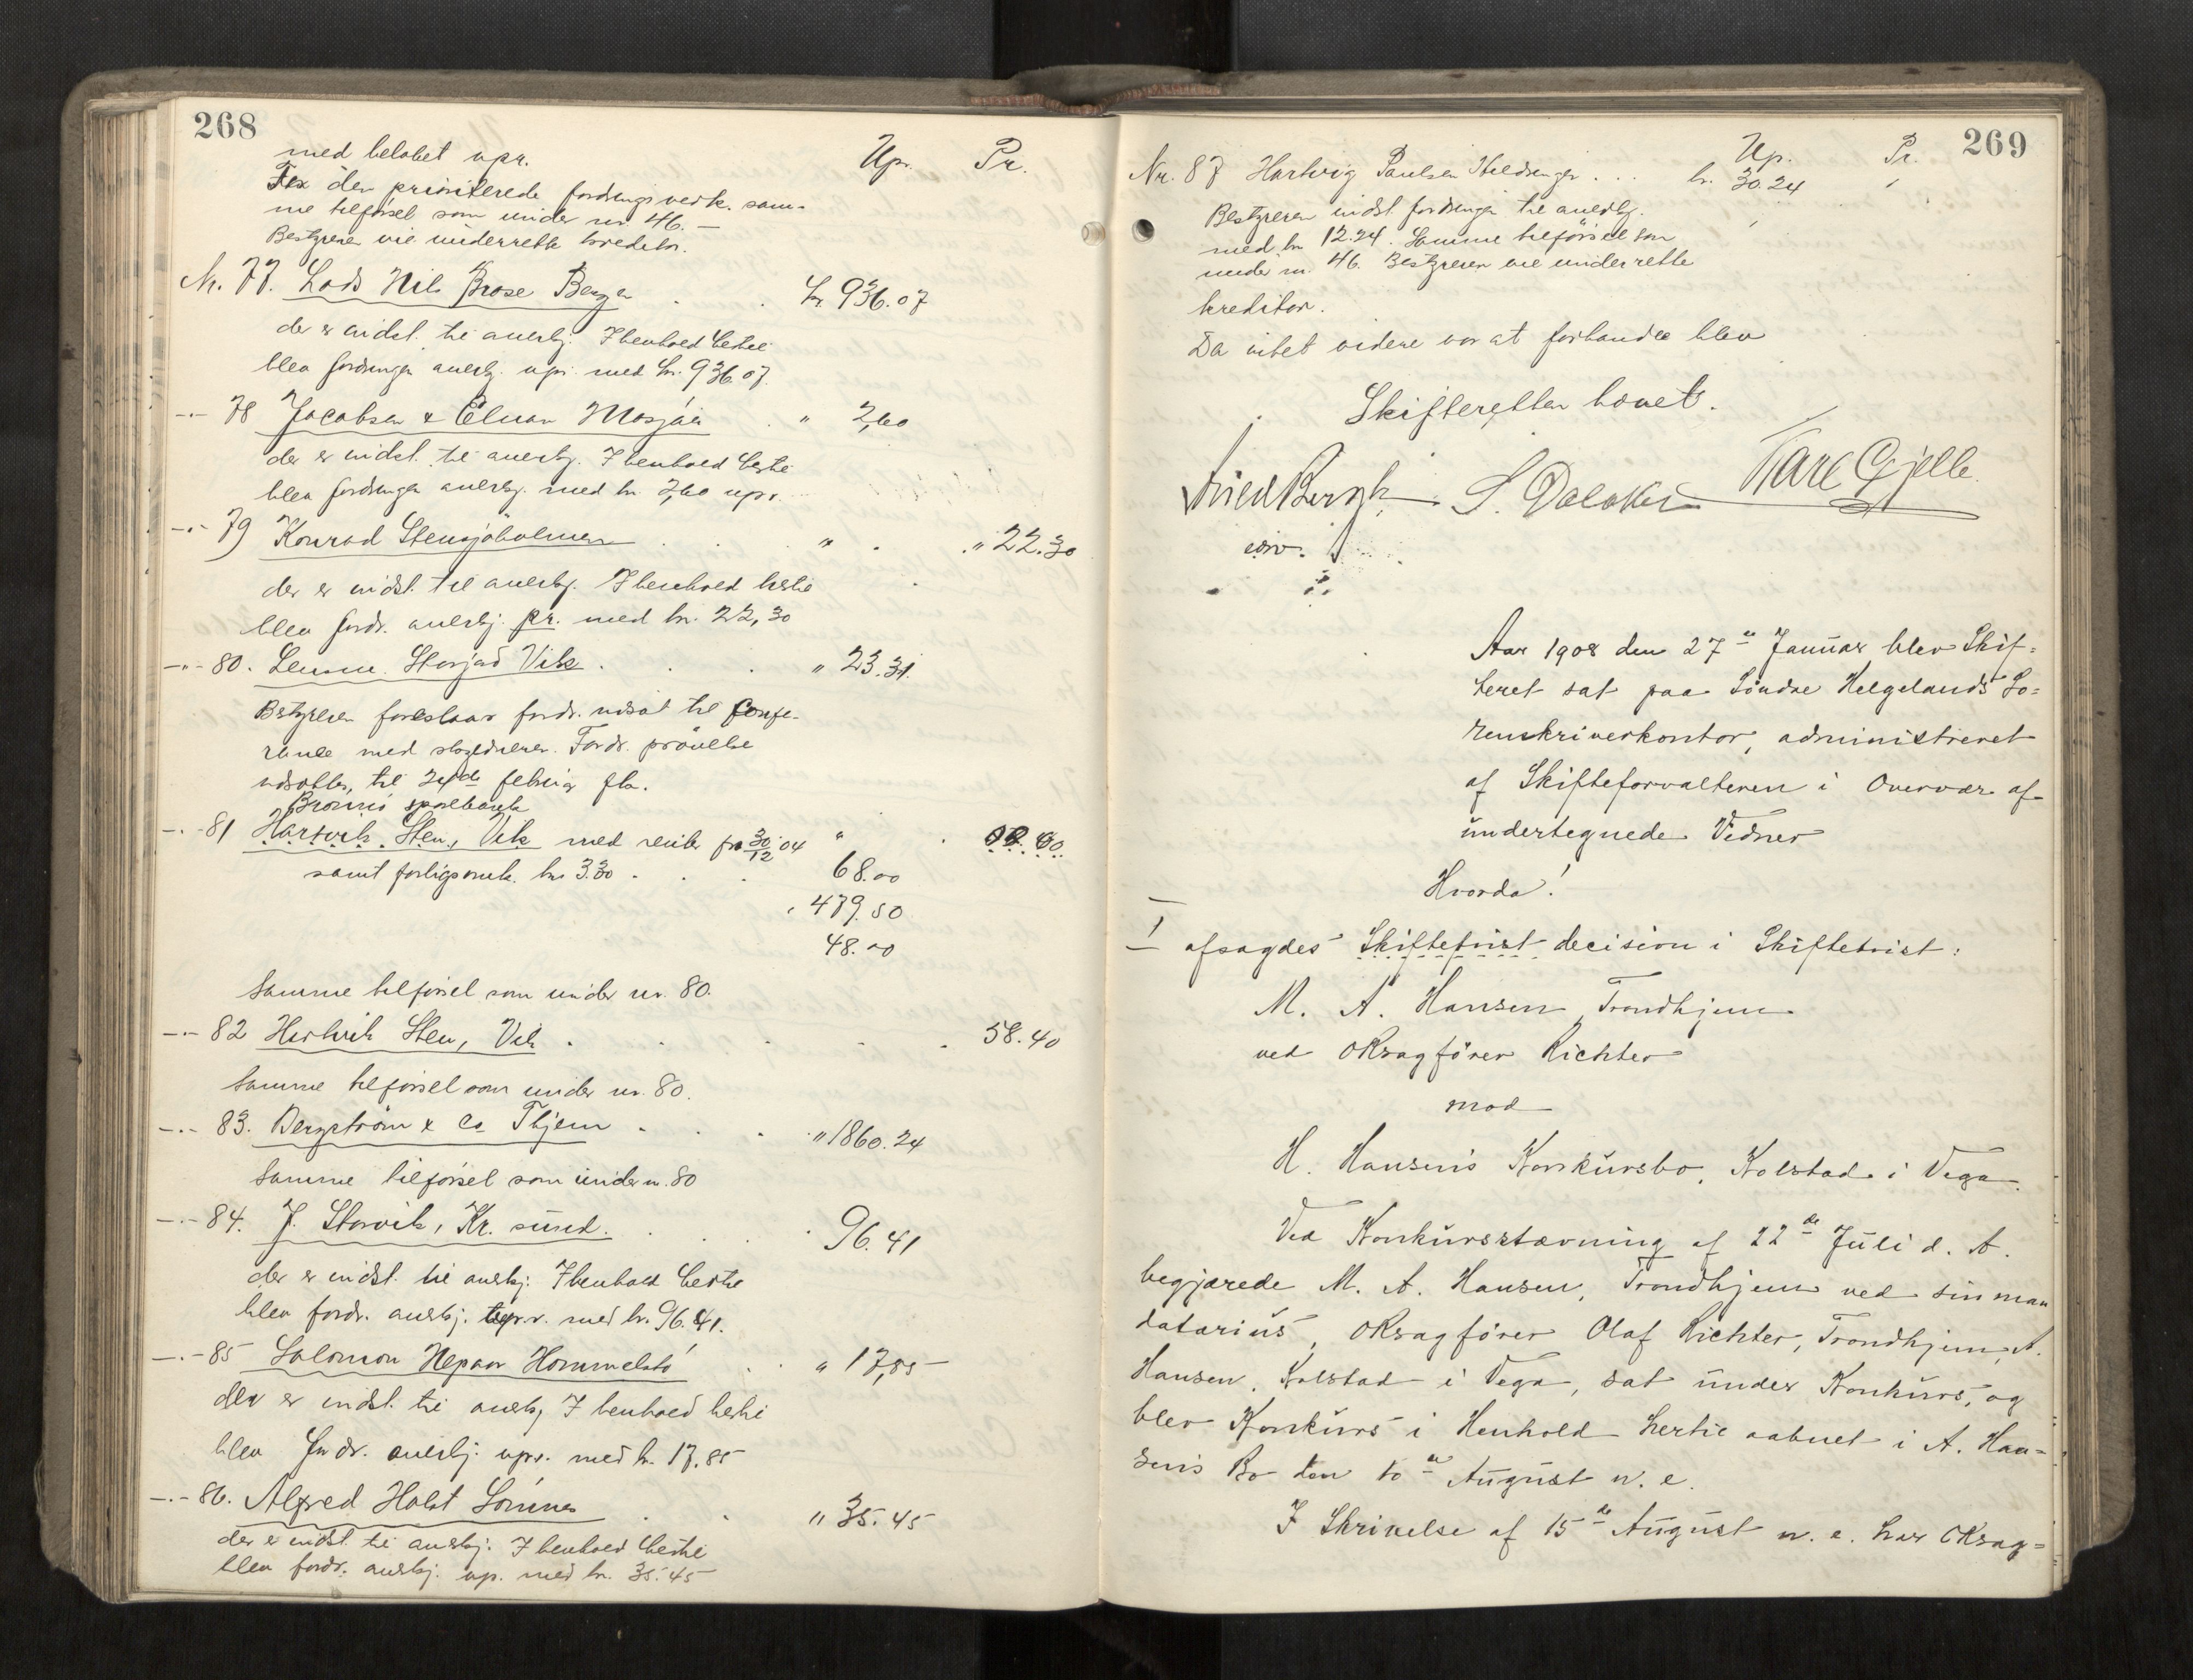 268
med beløbet upr. Upr. Pr.
For den prioriterede fordrings vedk. sam-
me tilførsel som under nr 46. —
Bestyreren vil underrette kreditor.
Nr. 77. Lods Nils Brose Berg kr 936.07
der er indst. til anerkj. I henhold hertil
blev fordringen anerkj. upr. med kr. 936.07.
-"- 78 Jacobsen & Elnan Mosjøen " 2,60
der er indst. til anerkj. I henhold hertil
blev fordringen anerkj. med kr. 2,60 upr.
-"- 79 Konrad Stensjøholmen " . " 22.30
der er indst. til anerkj. I henhold hertil
blev fordr. anerkj. pr. med kr. 22,30
-"- 80. Storjad Vik . . . " 23.31.
Bestyreren foreslaar fordr. udsat til Confe-
rance med Fordr. prøvelse
udsattes, til 24de februar
Brønnø sparebank
-"- 81 Hartvik Sten, Vik med renter fra 30/12 04 "
samt forligsomk. kr 3.30 . . . 68.00
" 479.50
48.00
Samme tilførsel som under nr. 80.
-"- 82 Hartvik Sten, Vik . . . . . 58.40
Samme tilførsel som under nr. 80.
-"- 83. Bergström & Co Thjem . . . " 1860.24
Samme tilførsel som under nr. 80
-"- 84. J. Storvik, Kr. sund. . . . . 96.41
der er indst. til anerkj. I henhold hertil
blev fordr. anerkj. upr. med kr. 96.41.
-"- 85 Salomon Hommelstø . . " 17,85
der er indst. til anerkj. I henhold hertil
blev fordr. anerkj. upr. med kr. 17.85
-"- 86. Alfred Holst Sømnes . . " 35.45
der er indst. til anerkj. I henhold hertil
blev fordr. anerkj. up. med kr. 35.45
269
Up. Pr.
Nr. 87 Hartvig Paulsen Hildringen . . . kr. 30.24
Bestyreren indst. fordringen til anerkj.
med kr 12.24. Samme tilførsel som
under nr. 46. Bestyreren vil underrette
kreditor.
Da intet videre var at forhandle blev
Skifteretten hævet.
S. Dalaker Kare Gjelle
Aar 1908 den 27de Januar blev Skif-
teret sat paa Søndre Helgelands So-
renskriverkontor, administreret
af Skifteforvalteren i Overvær af
undertegnede Vidner
Hvorda!
I
afsagdes Skiftetvist decision i Skiftetvist:
M. A. Hansen, Trondhjem
ved ORsagfører Richter
mod
H. Hansen's Konkursbo, Kolstad i Vega.
Ved Konkursstævning af 22de Juli d. A.
begjærede M. A. Hansen, Trondhjem ved sin man
datarius, ORsagfører Olaf Richter, Trondhjem, A.
Hansen, Kolstad i Vega, sat under Konkurs, og
blev Konkurs i Henhold hertil aabnet i A. Han-
sens Bo den 10de August n. e.
I Skrivelse af 15de August n. e. har ORsag-